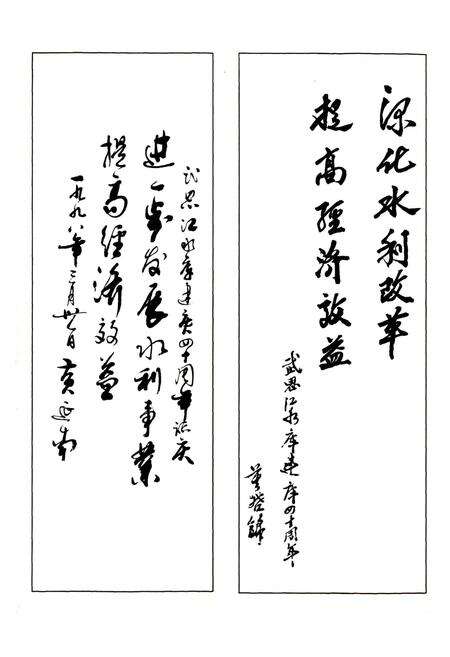 深化水利改革
提高經济效益
武思江水库建库四十周年
武思江水库建库四十周年誌庆
進一步发展水利事業
提高經濟效益
一九九八年三月卅日 黄延南